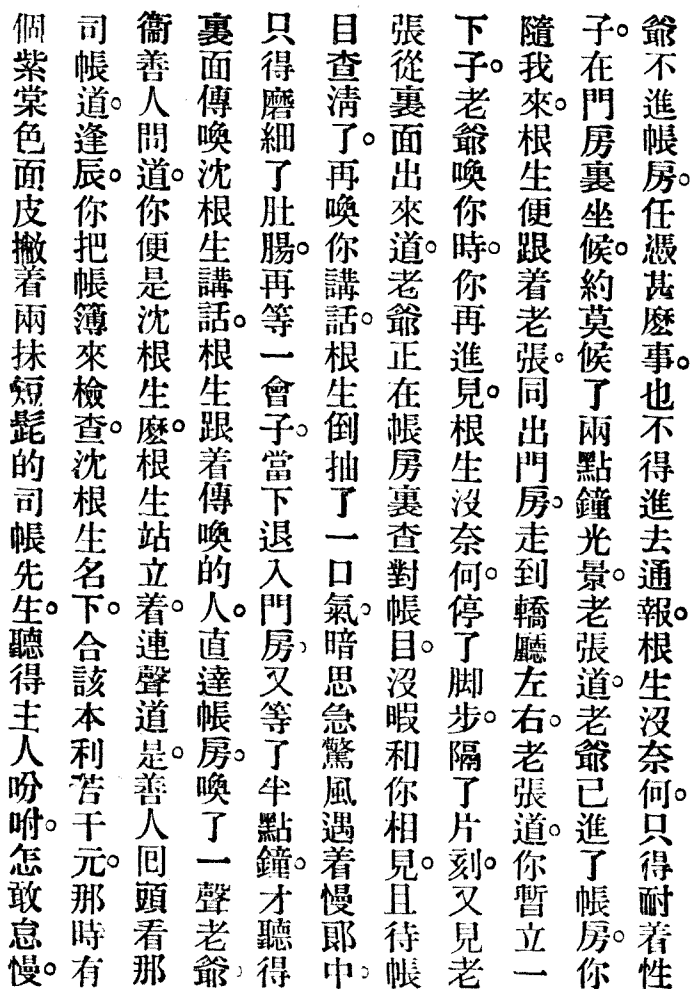 爺不進帳房。任憑甚麽事。也不得進去通報。根生沒奈何。只得耐着性
子。在門房裏坐候。約莫候了兩點鐘光景。老張道。老爺已進了帳房。你
隨我來。根生便跟着老張。同出門房。走到轎廳左右。老張道。你暫立一
下子。老爺喚你時。你再進見。根生沒奈何。停了脚步。隔了片刻。又見老
張從裏面出來道。老爺正在帳房裏查對帳目。沒暇和你相見。且待帳
目查淸了。再喚你講話。根生倒抽了一口氣。暗思急驚風遇着慢郞中。
只得磨細了肚腸。再等一會子。當下退入門房。又等了半點鐘。才聽得
裏面傳喚沈根生講話。根生跟着傳喚的人。直達帳房。喚了一聲老爺。
衞善人問道。你便是沈根生麽。根生站立着。連聲道是。善人囘頭看那
司帳道。逢辰。你把帳簿來檢查。沈根生名下。合該本利若干元。那時有
個紫棠色面皮撇着兩抹短髭的司帳先生。聽得主人吩咐。怎敢怠慢。